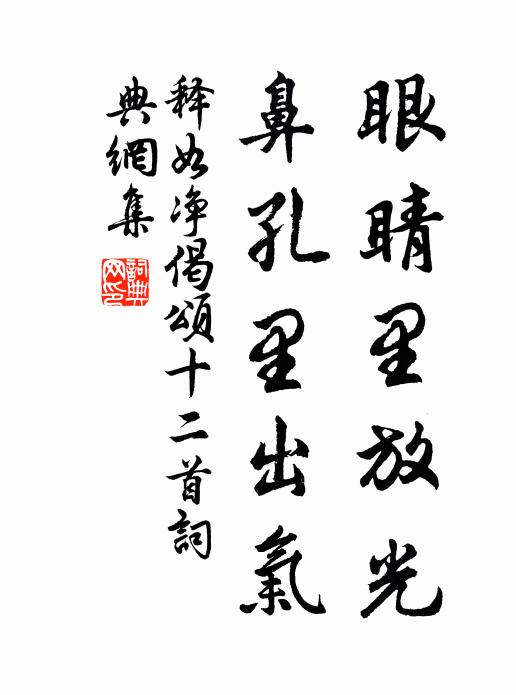 眼睛里放光
鼻孔里出氣
释如净偈頌十二首詞
典網集
詞典
网印